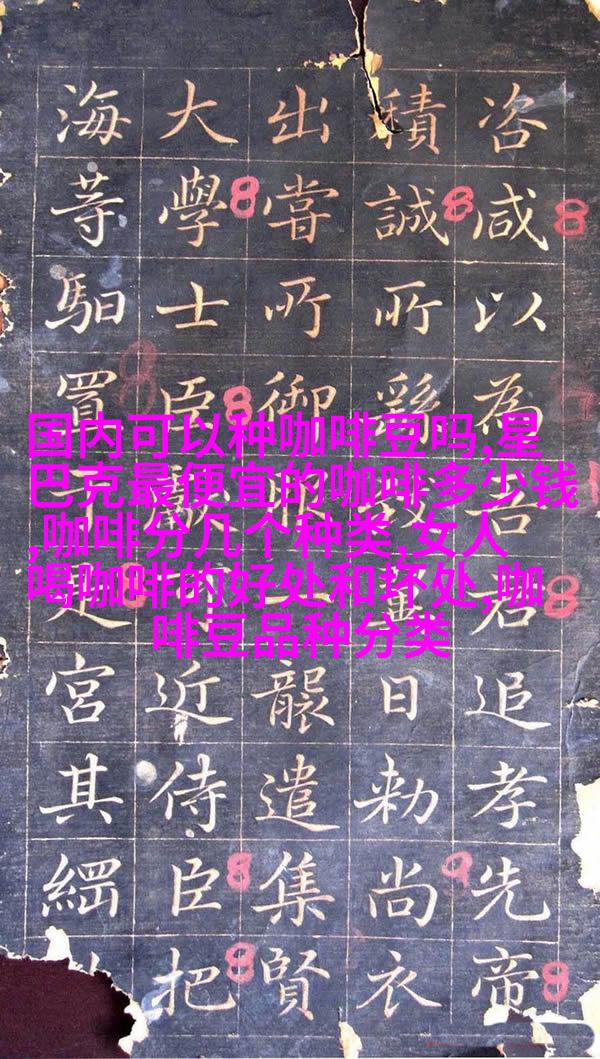 咨咸以為吾君追孝先帝
積誠所繇致日勑尚衣
出嘗所御服一襲遣集賢
大學士臣近侍臣把
海等馹置于宮其
国内可以种咖啡豆吗,星
巴克最便宜的咖啡多少钱
,咖啡分几个种类,女人
喝咖啡的好处和坏处,咖
啡豆品种分类